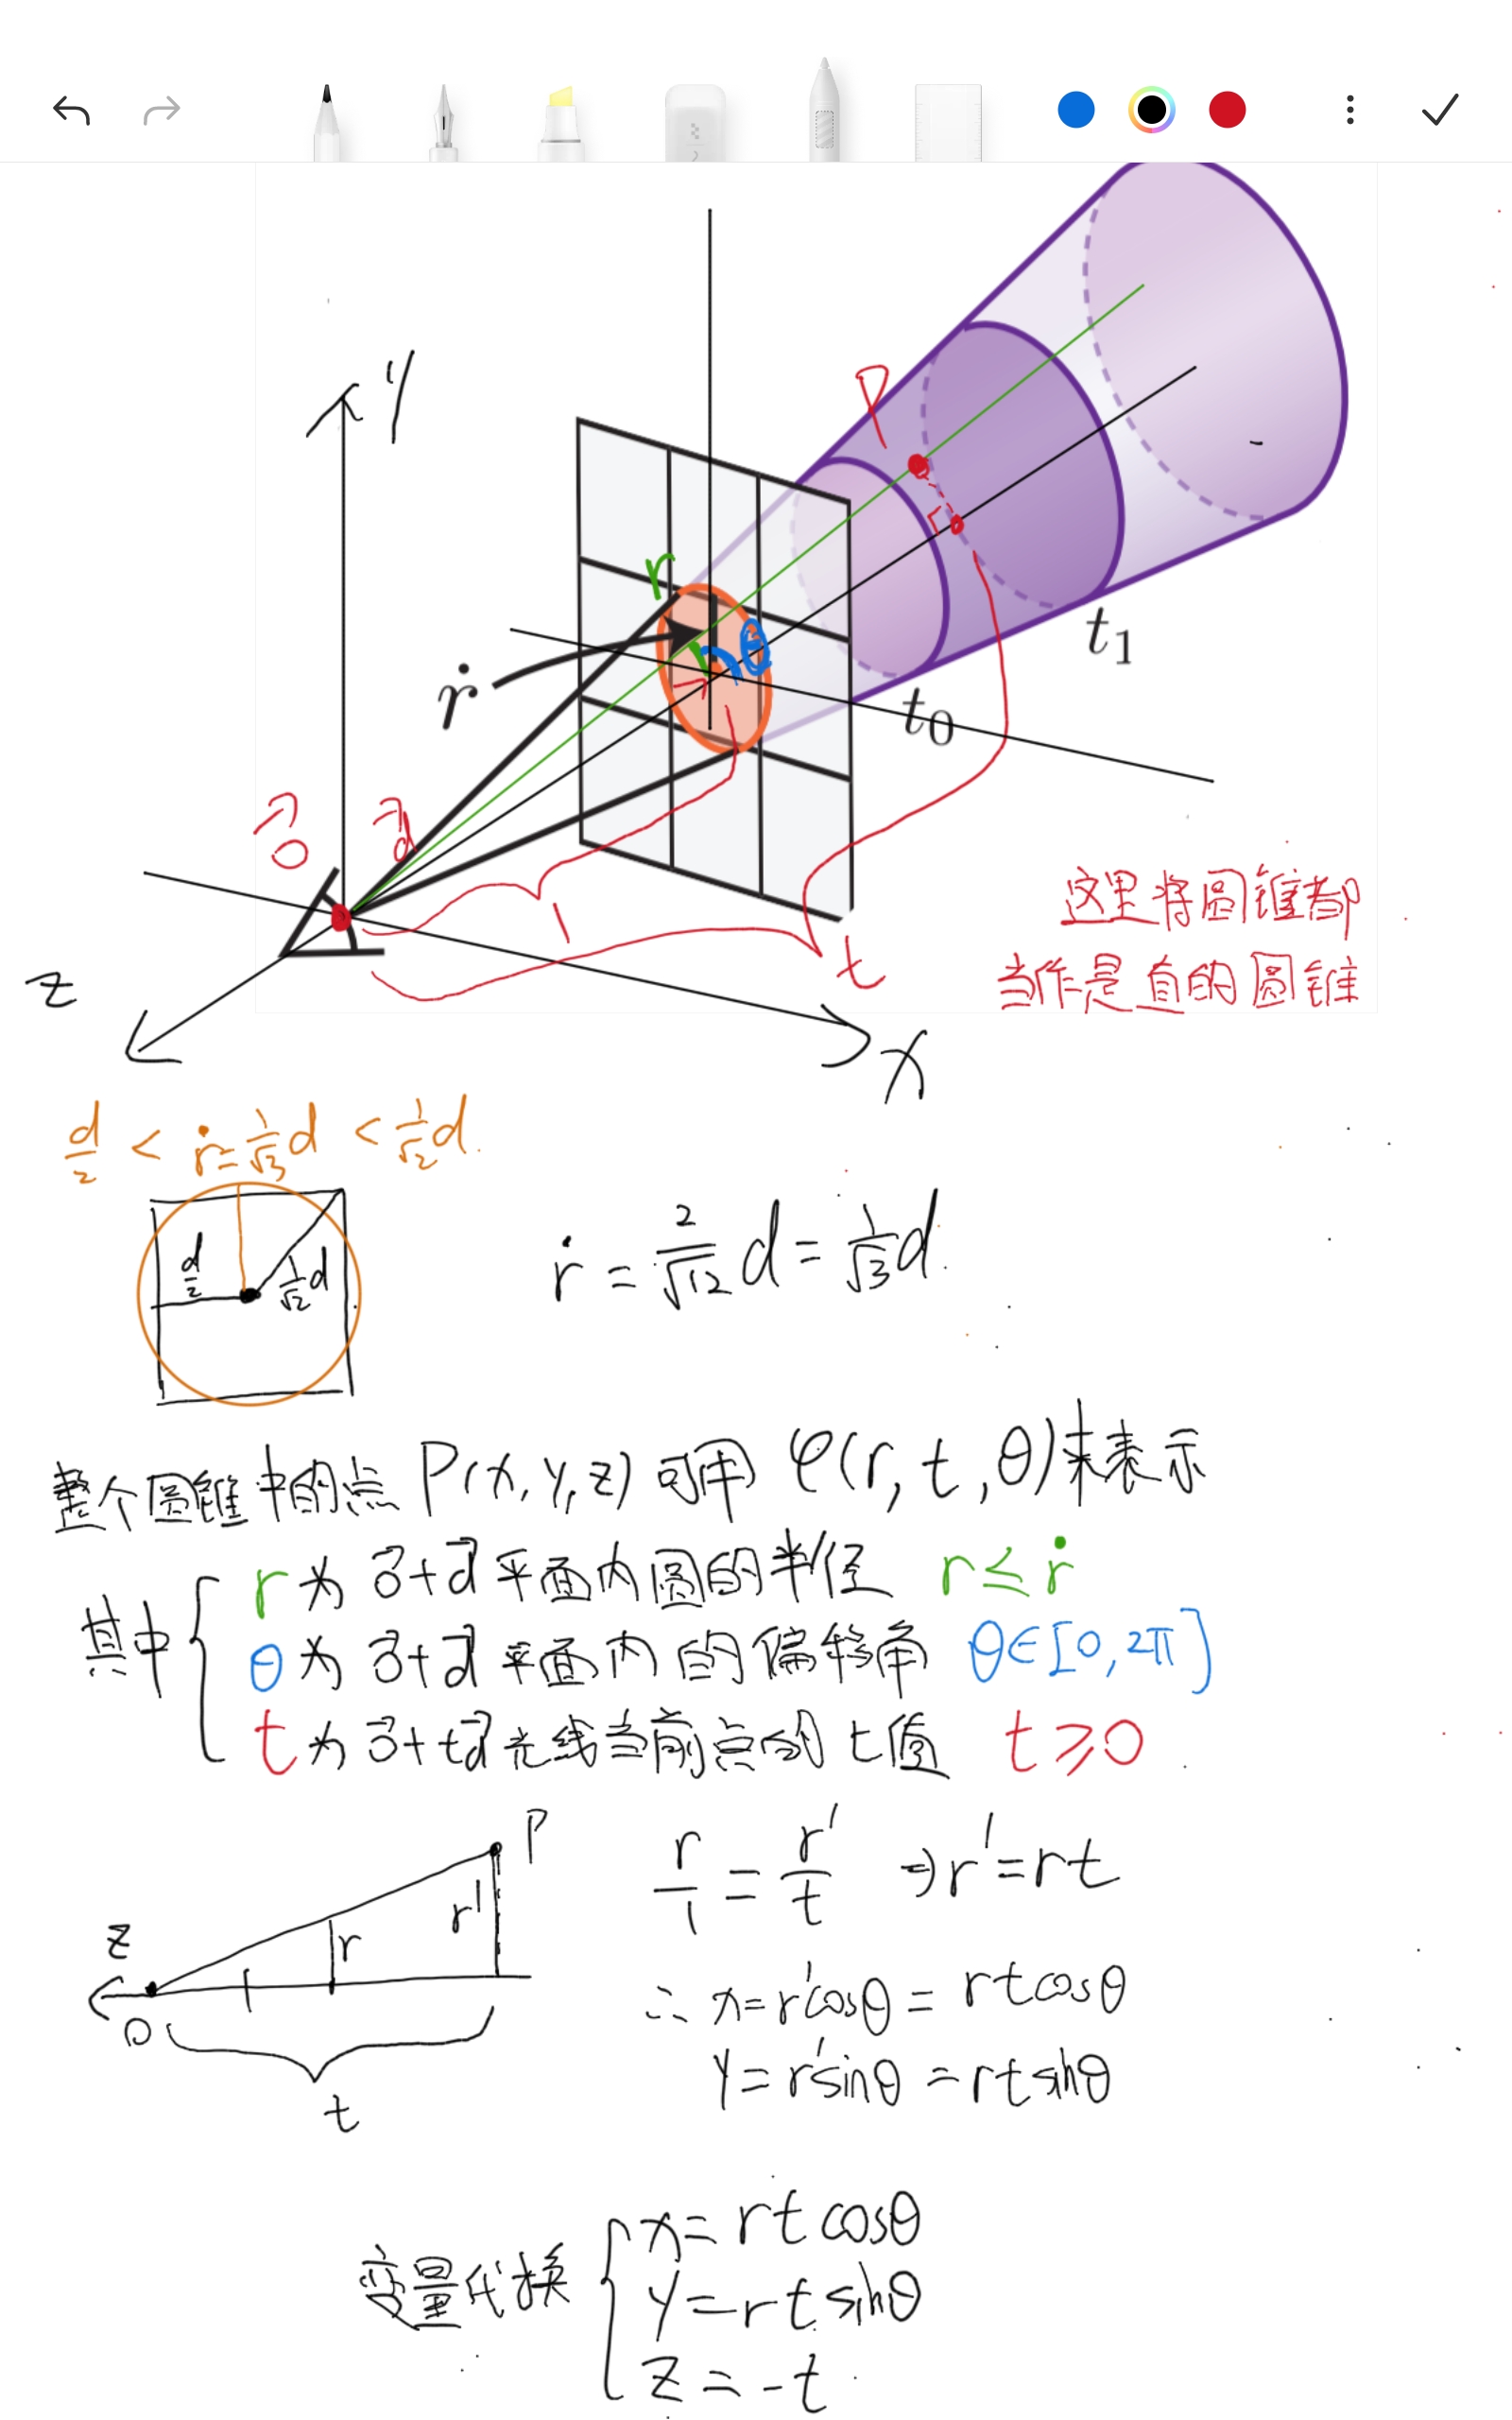 Y
P
r
θ
ṙ
t₁
t₀
o⃗
d⃗
1
t
z
x
这里将圆锥都
当作是直的圆锥
d/2 < ṙ = 1/√3 d < 1/√2 d.
d/2
1/√2 d
ṙ = 2/√12 d = 1/√3 d.
整个圆锥中的点 P(x, y, z) 可用 φ(r, t, θ) 来表示
其中 { r 为 o⃗+d⃗ 平面内圆的半径 r ≤ ṙ
θ 为 o⃗+d⃗ 平面内的偏移角 θ∈[0, 2π]
t 为 o⃗+td⃗ 光线当前点的 t 值 t ⩾ 0
P
r/1 = r'/t ⇒ r' = rt
r'
z
r
O
t
∴ x = r'cosθ = rtcosθ
y = r'sinθ = rtsinθ
变量代换 { x = rt cosθ
y = rt sinθ
z = -t